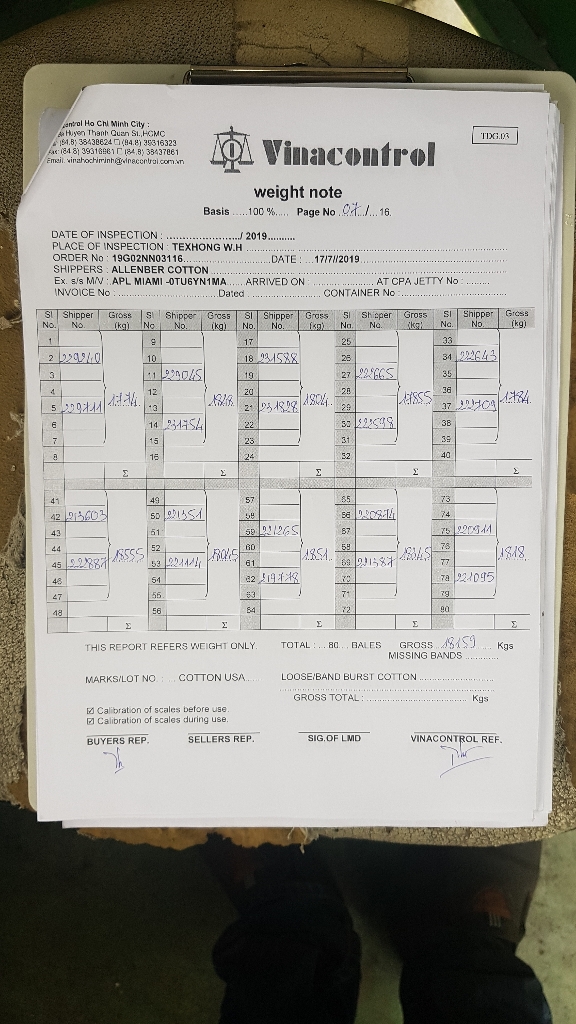 entrol Ho Chi Minh City :
Huyen Thanh Quan St.,HCMC
(84.8) 38438624 (84.8) 39316323
(84.8) 39316961 (84.8) 38437861
Email. vinahochiminh@vinacontrol.com.vn
Vinacontrol
TDG.03
weight note
Basis .....100 %..... Page No .07./... 16.
DATE OF INSPECTION : ........................../ 2019..........
PLACE OF INSPECTION : TEXHONG W.H
ORDER No : 19G02NN03116 DATE : ....17/7//2019
SHIPPERS : ALLENBER COTTON
Ex. s/s M/V : APL MIAMI -0TU6YN1MA ARRIVED ON : AT CPA JETTY No :
INVOICE No : Dated : CONTAINER No :
Sl No. Shipper No. Gross (kg) Sl No. Shipper No. Gross (kg) Sl No. Shipper No. Gross (kg) Sl No. Shipper No. Gross (kg) Sl No. Shipper No. Gross (kg)
1 9 17 25 33
2 229240 10 18 231588 26 34 222643
3 11 229045 19 27 222665 35
4 12 20 28 36
5 229711 1774 13 1828 21 231828 1804 29 17855 37 222709 1784
6 14 231754 22 30 222598 38
7 15 23 31 39
8 16 24 32 40
Σ Σ Σ Σ Σ
41 49 57 65 73
42 213603 50 221351 58 66 220874 74
43 51 59 221265 67 75 220911
44 52 60 68 76
45 222887 18555 53 221114 61 1851 69 221387 77 1818
46 54 62 219778 70 78 221095
47 55 63 71 79
48 56 64 72 80
Σ Σ Σ Σ Σ
THIS REPORT REFERS WEIGHT ONLY. TOTAL : ... 80... BALES GROSS 18159 Kgs
MISSING BANDS
MARKS/LOT NO. : COTTON USA.... LOOSE/BAND BURST COTTON
GROSS TOTAL : Kgs
☑ Calibration of scales before use.
☑ Calibration of scales during use.
BUYERS REP. SELLERS REP. SIG.OF LMD VINACONTROL REF.